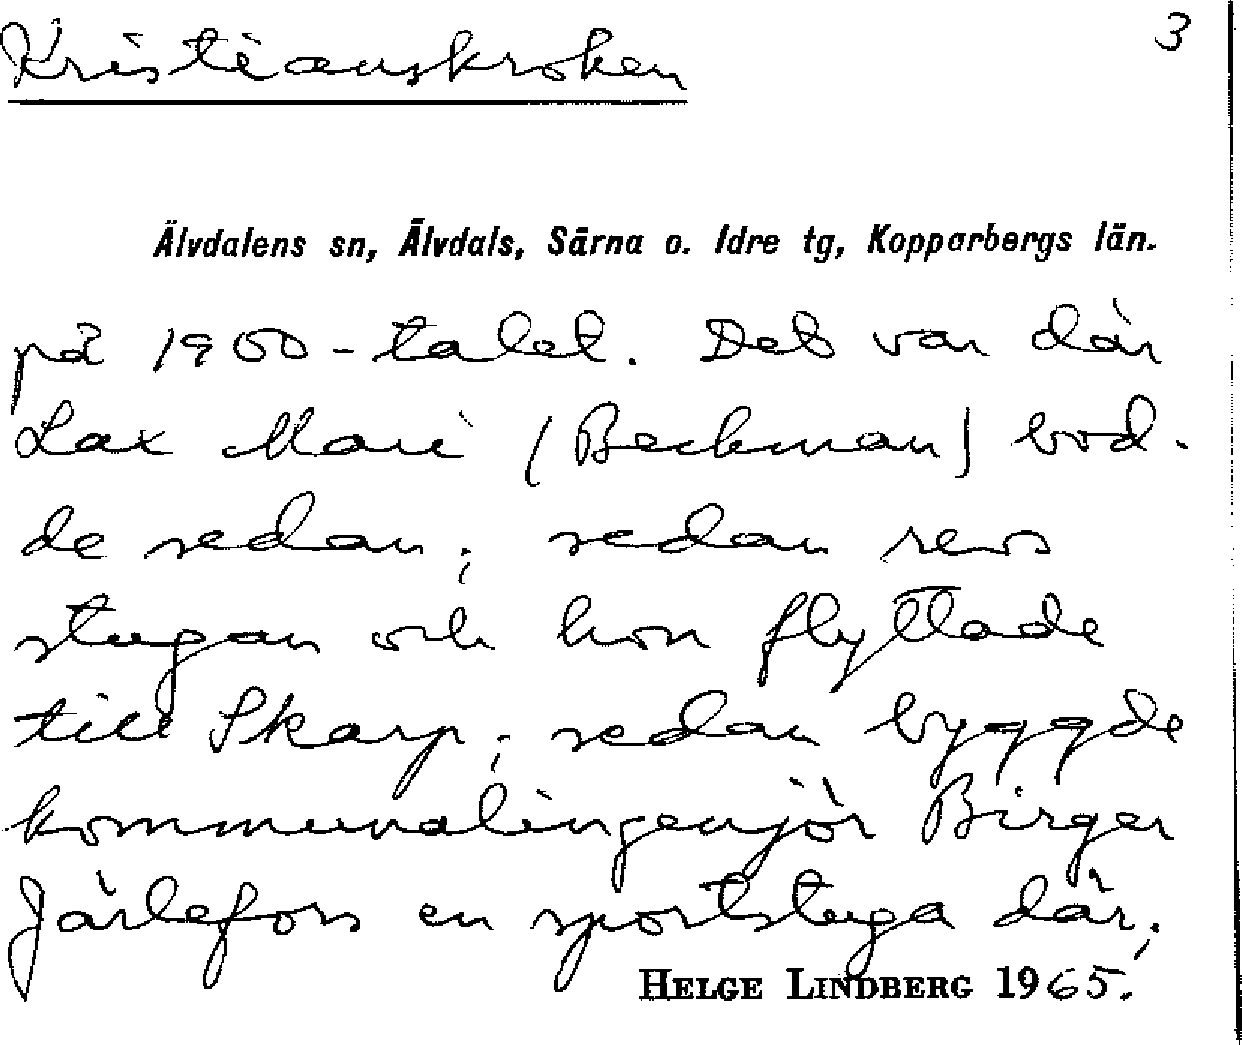 Kristianskroken 3
Älvdalens sn, Älvdals, Särna o. Idre tg, Kopparbergs län.
på 1900-talet. Det var där
Lax Mari (Beckman) bod-
de sedan; sedan revs
stugan och hon flyttade
till Skarp; sedan byggde
kommunalingenjör Birger
Järlefors en sportstuga där;
HELGE LINDBERG 1965.